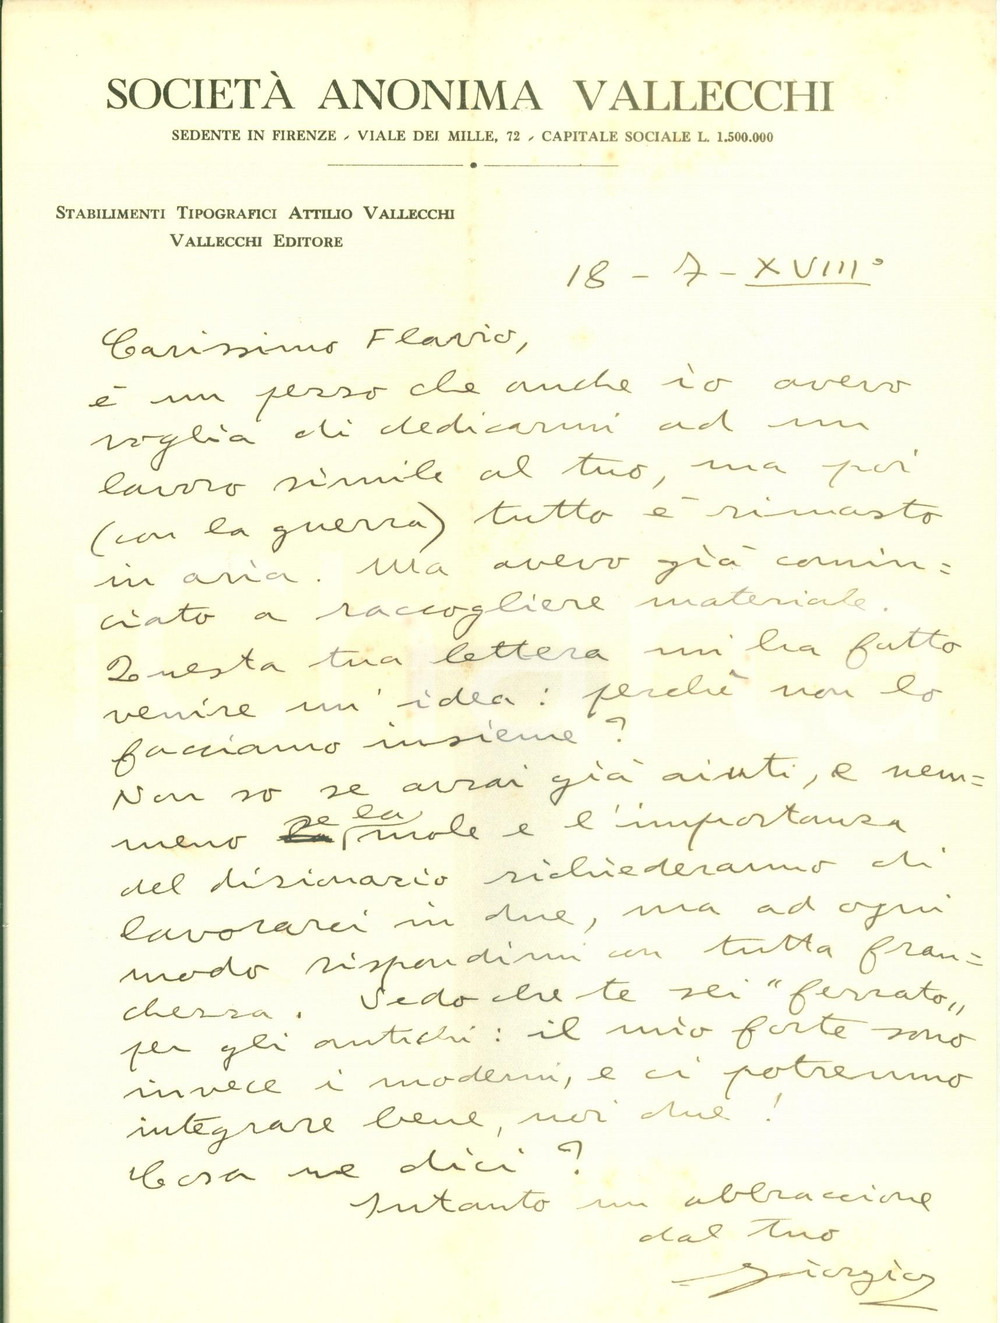 SOCIETÀ ANONIMA VALLECCHI
SEDENTE IN FIRENZE - VIALE DEI MILLE, 72 - CAPITALE SOCIALE L. 1.500.000
STABILIMENTI TIPOGRAFICI ATTILIO VALLECCHI
VALLECCHI EDITORE
18 - 7 - XVIII°
Carissimo Flavio,
è un pezzo che anche io avevo
voglia di dedicarmi ad un
lavoro simile al tuo, ma poi
(con la guerra) tutto è rimasto
in aria. Ma avevo già comin=
ciato a raccogliere materiale.
Questa tua lettera mi ha fatto
venire un'idea: perchè non lo
facciamo insieme?
Non so se avrai già aiuti, e nem=
meno se la mole e l'importanza
del dizionario richiederanno di
lavorarci in due, ma ad ogni
modo rispondimi con tutta fran=
chezza. Vedo che te sei "ferrato„
per gli antichi: il mio forte sono
invece i moderni, e ci potremmo
integrare bene, noi due!
Cosa ne dici?
Intanto un abbraccione
dal tuo
Giorgio